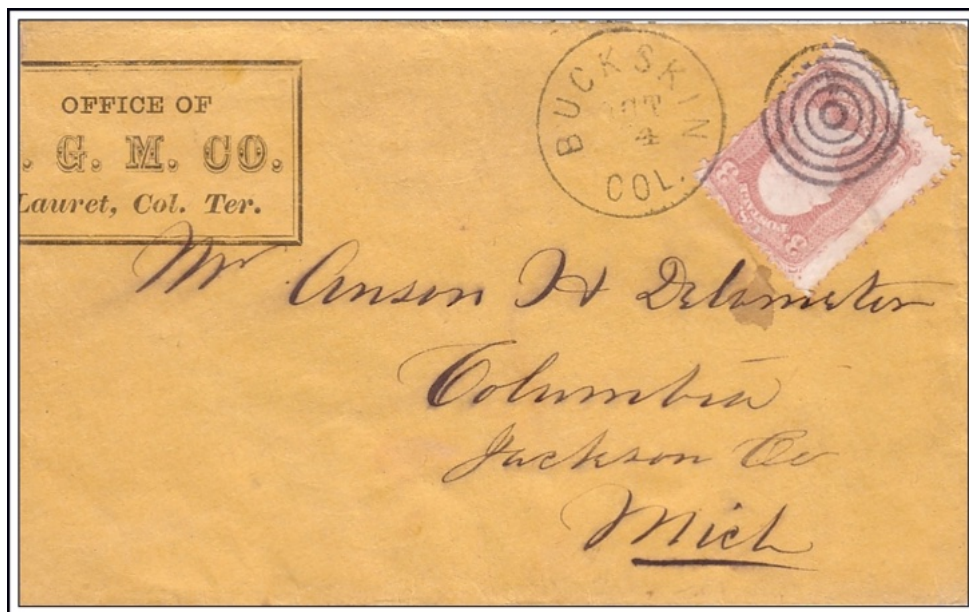 OFFICE OF
. G. M. CO.
Lauret, Col. Ter.
BUCKSKIN
OCT
4
COL.
Mr Anson H Delameter
Columbia
Jackson Co
Mich